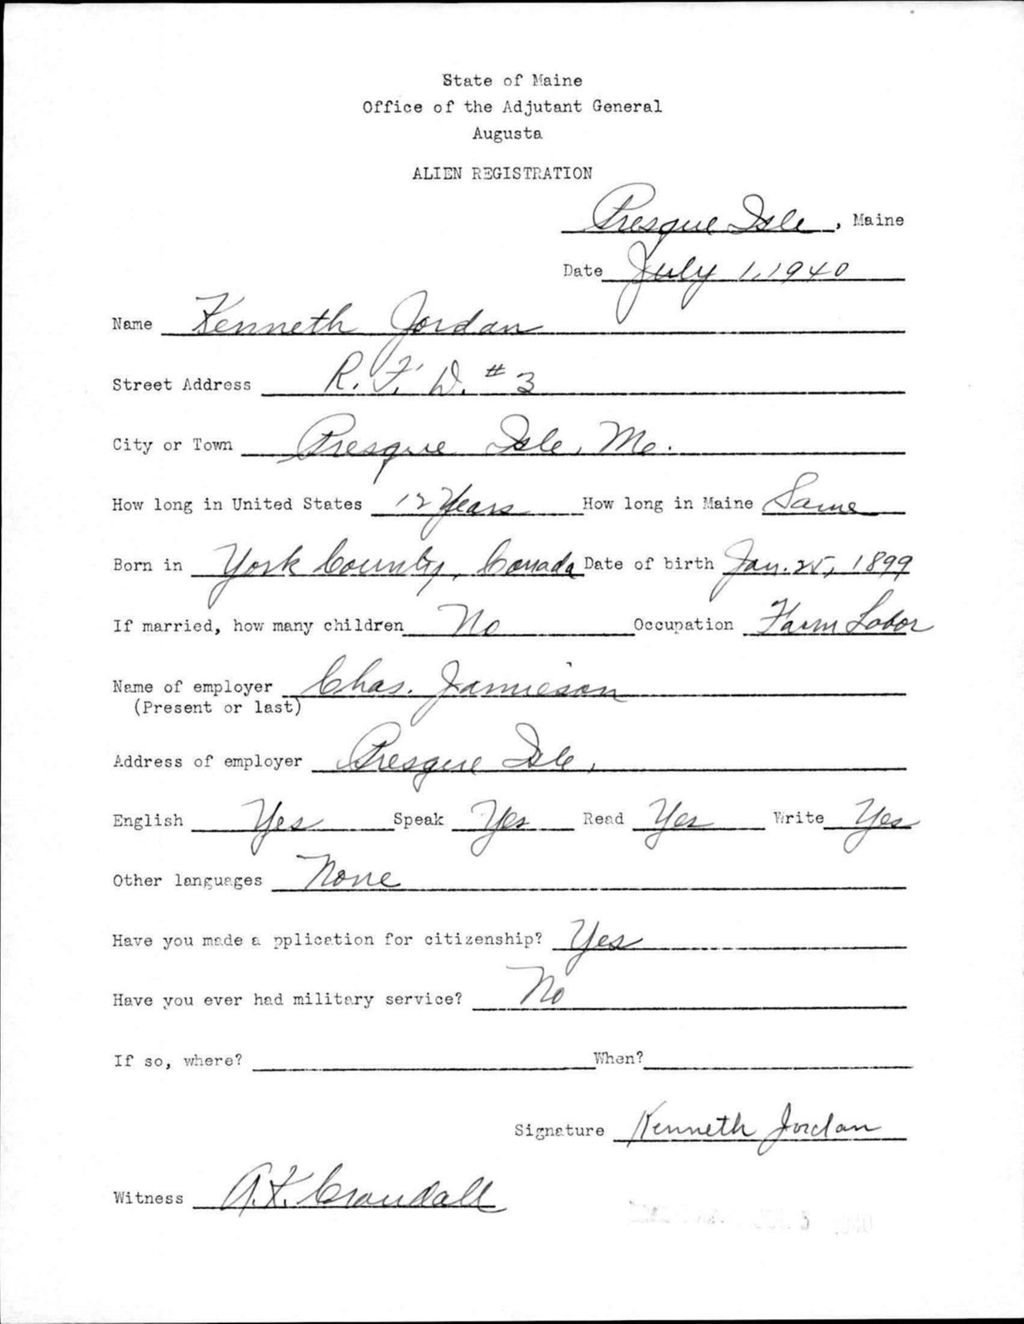 State of Maine
Office of the Adjutant General
Augusta
ALIEN REGISTRATION
Presque Isle, Maine
Date July 1, 1940
Name Kenneth Jordan
Street Address R. F. D. #3
City or Town Presque Isle, Me.
How long in United States 12 Years How long in Maine Same
Born in York County, Canada Date of birth Jan. 25, 1899
If married, how many children No Occupation Farm Labor
Name of employer Chas. Jamieson
(Present or last)
Address of employer Presque Isle,
English Yes Speak Yes Read Yes Write Yes
Other languages None
Have you made a pplication for citizenship? Yes
Have you ever had military service? No
If so, where? When?
Signature Kenneth Jordan
Witness A. K. Crandall